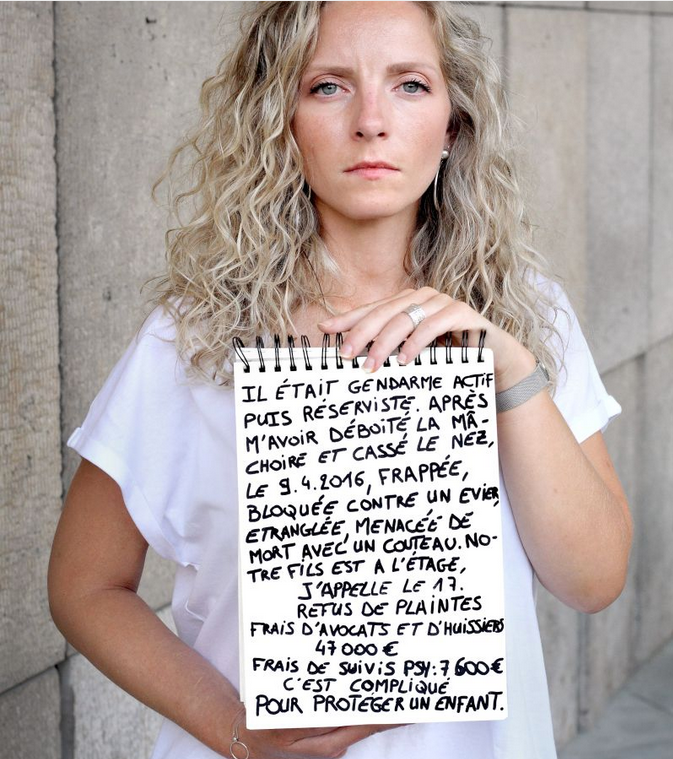 IL ÉTAIT GENDARME ACTIF
PUIS RÉSERVISTE. APRÈS
M'AVOIR DÉBOITÉ LA MÂ-
CHOIRE ET CASSÉ LE NEZ,
LE 9.4.2016, FRAPPÉE,
BLOQUÉE CONTRE UN EVIER,
ETRANGLÉE, MENACÉE DE
MORT AVEC UN COUTEAU. NO-
TRE FILS EST A L'ÉTAGE,
J'APPELLE LE 17.
REFUS DE PLAINTES
FRAIS D'AVOCATS ET D'HUISSIERS
47 000 €
FRAIS DE SUIVIS PSY: 7 600 €
C'EST COMPLIQUÉ
POUR PROTEGER UN ENFANT.